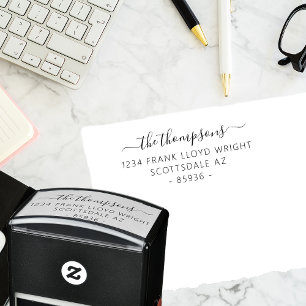 the thompsons
1234 FRANK LLOYD WRIGHT
SCOTTSDALE AZ
- 85936 -
the thompsons
1234 FRANK LLOYD WRIGHT
SCOTTSDALE AZ
85936
z